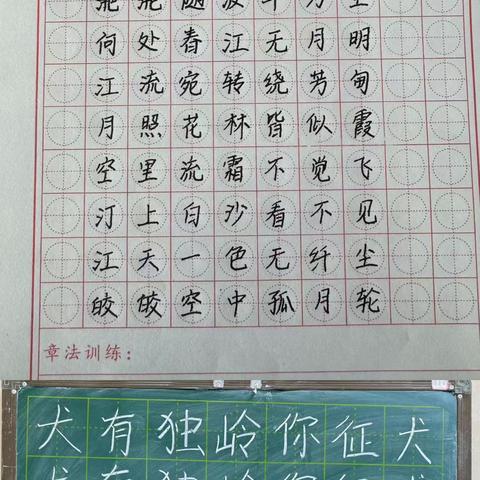 何处春江无月明
江流宛转绕芳甸
月照花林皆似霞
空里流霜不觉飞
汀上白沙看不见
江天一色无纤尘
皎皎空中孤月轮
章法训练：
犬有独岭你征犬